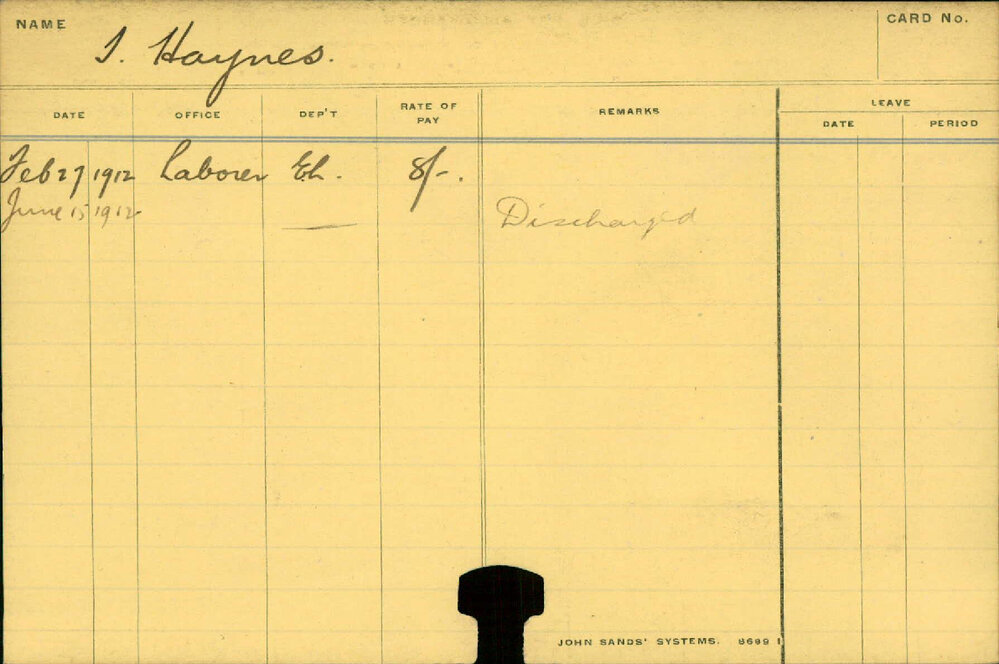 NAME
CARD No.
J. Haynes.
DATE OFFICE DEP'T RATE OF PAY REMARKS LEAVE
DATE PERIOD
Feb 27 1912 Laborer Eh. 8/-.
June 15 1912 — Discharged
JOHN SANDS' SYSTEMS. 8699